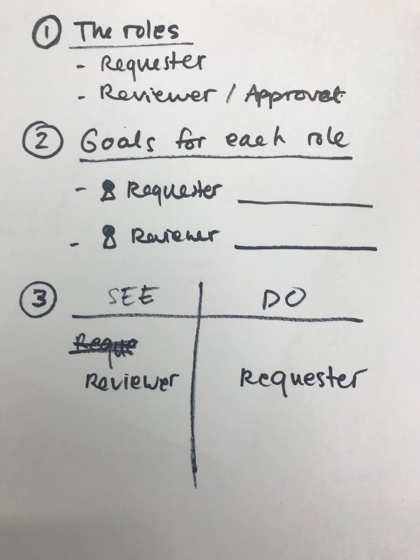 ① The roles
- Requester
- Reviewer / Approver
② Goals for each role
- Requester
- Reviewer
③ SEE DO
Reque
Reviewer Requester